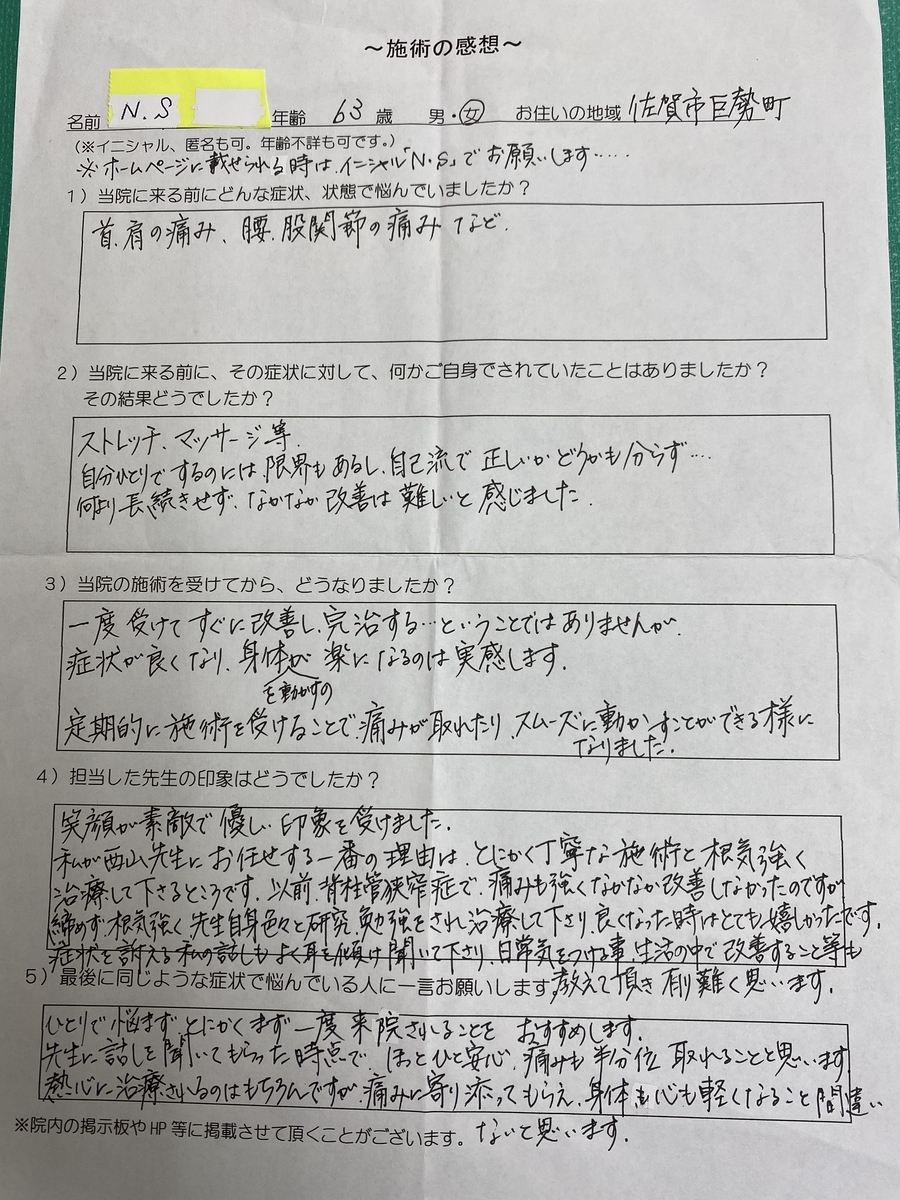 ～施術の感想～
名前 N.S 年齢 63 歳 男・女 お住いの地域 佐賀市巨勢町
（※イニシャル、匿名も可。年齢不詳も可です。）
※ホームページに載せられる時は、イニシャル「N・S」でお願いします……
1）当院に来る前にどんな症状、状態で悩んでいましたか？
首、肩の痛み、腰、股関節の痛みなど.
2）当院に来る前に、その症状に対して、何かご自身でされていたことはありましたか？
その結果どうでしたか？
ストレッチ、マッサージ等.
自分ひとりでするのには、限界もあるし、自己流で正しいかどうかも分らず….
何より長続きせず、なかなか改善は難しいと感じました.
3）当院の施術を受けてから、どうなりましたか？
一度受けてすぐに改善し、完治する…ということではありませんが、
症状が良くなり、身体が楽になるのは実感します.
を動かすの
定期的に施術を受けることで、痛みが取れたり、スムーズに動かすことができる様に
なりました.
4）担当した先生の印象はどうでしたか？
笑顔が素敵で優しい印象を受けました.
私が西山先生にお任せする一番の理由は、とにかく丁寧な施術と根気強く
治療して下さるところです.以前、脊柱管狭窄症で、痛みも強くなかなか改善しなかったのですが
締めず、根気強く先生自身色々と研究、勉強をされ治療して下さり、良くなった時はとても嬉しかったです.
症状を訴える私の話しもよく耳を傾け聞いて下さり、日常気をつける事、生活の中で改善すること等も
教えて頂き有難く思います.
5）最後に同じような症状で悩んでいる人に一言お願いします。
ひとりで悩まず、とにかくまず一度来院されることをおすすめします.
先生に話しを聞いてもらった時点で、ほっとひと安心、痛みも半分位取れることと思います
熱心に治療されるのはもちろんですが、痛みに寄り添ってもらえ、身体も心も軽くなること間違い
ないと思います.
※院内の掲示板やHP等に掲載させて頂くことがございます。